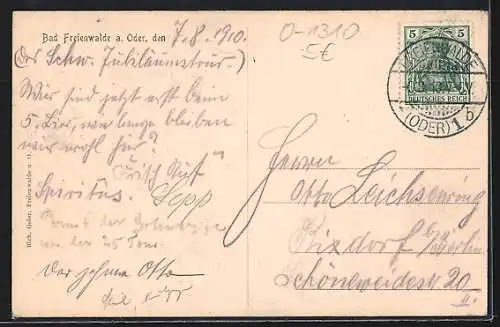 Bad Freienwalde a. Oder, den 7.8.1910.
(Der Schw. Jubiläumstrur.)
Wir sind jetzt erst beim
5. Bier, wie lange bleiben
wir wohl hier?
"Frisch Auf"
Spiritus. Sepp
der 25
Der zahme Otto
O-1310
5€
5 5
DEUTSCHES REICH
FREIENWALDE
(ODER) 1 b
Herrn
Otto Leichsenring
Rixdorf b/Berlin
Schöneweidestr 20
II.
Rich. Geder, Freienwalde a. O.